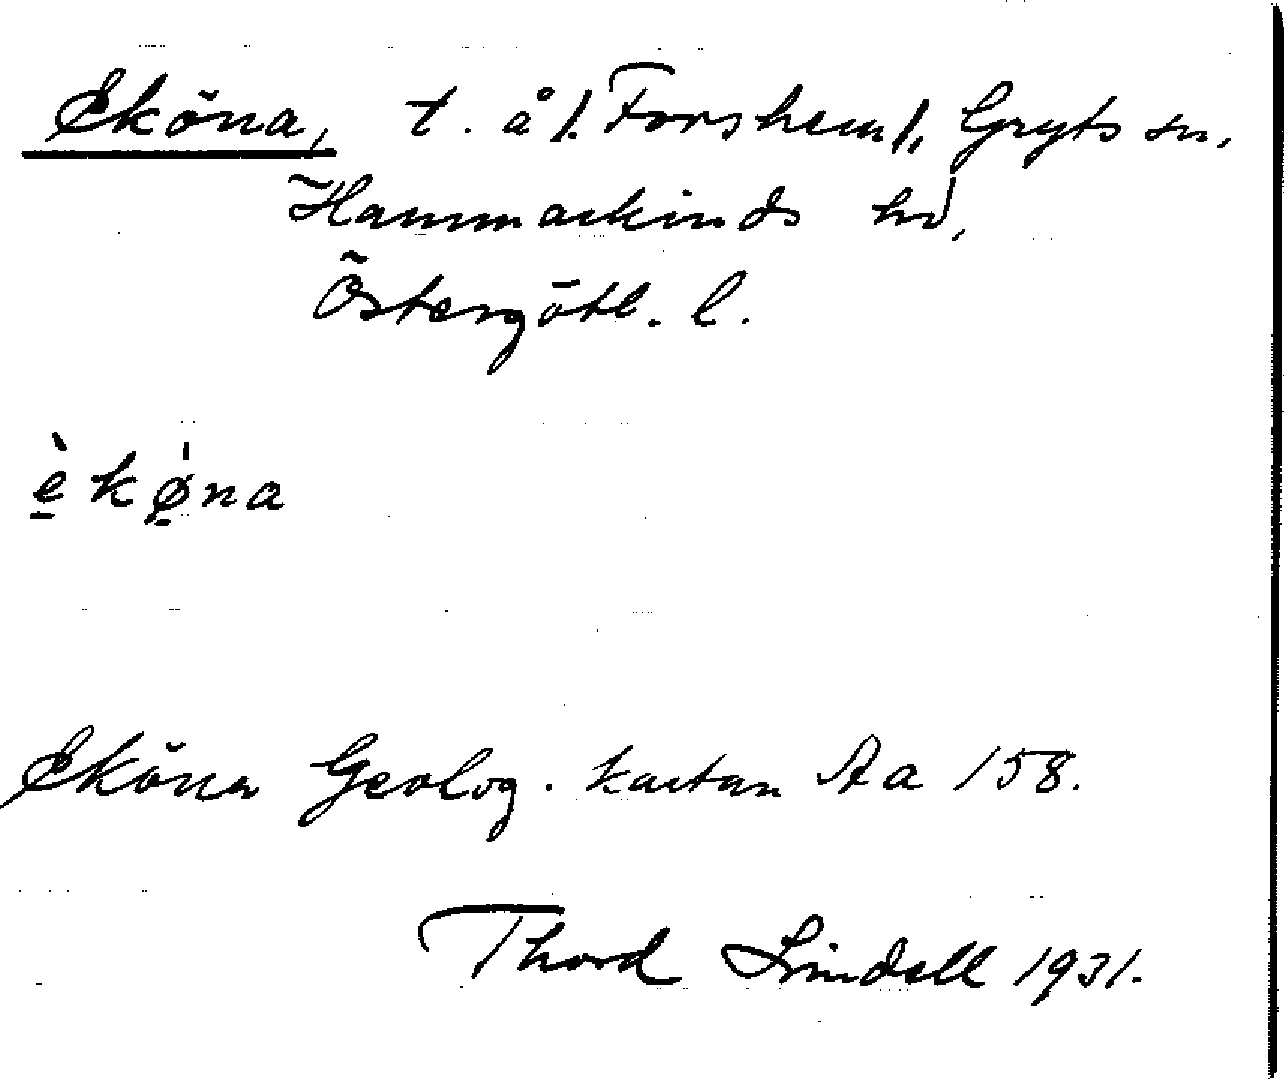 Eköna, t. å /. Forshem /. Gryts sn,
Hammarkinds hd,
Östergötl. l.
è̱kø̱̍na
Eköna Geolog. kartan Aa 158.
Thord Lindell 1931.